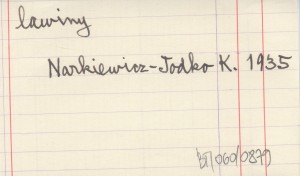 lawiny
Narkiewicz-Jodko K. 1935
BT/060/0879